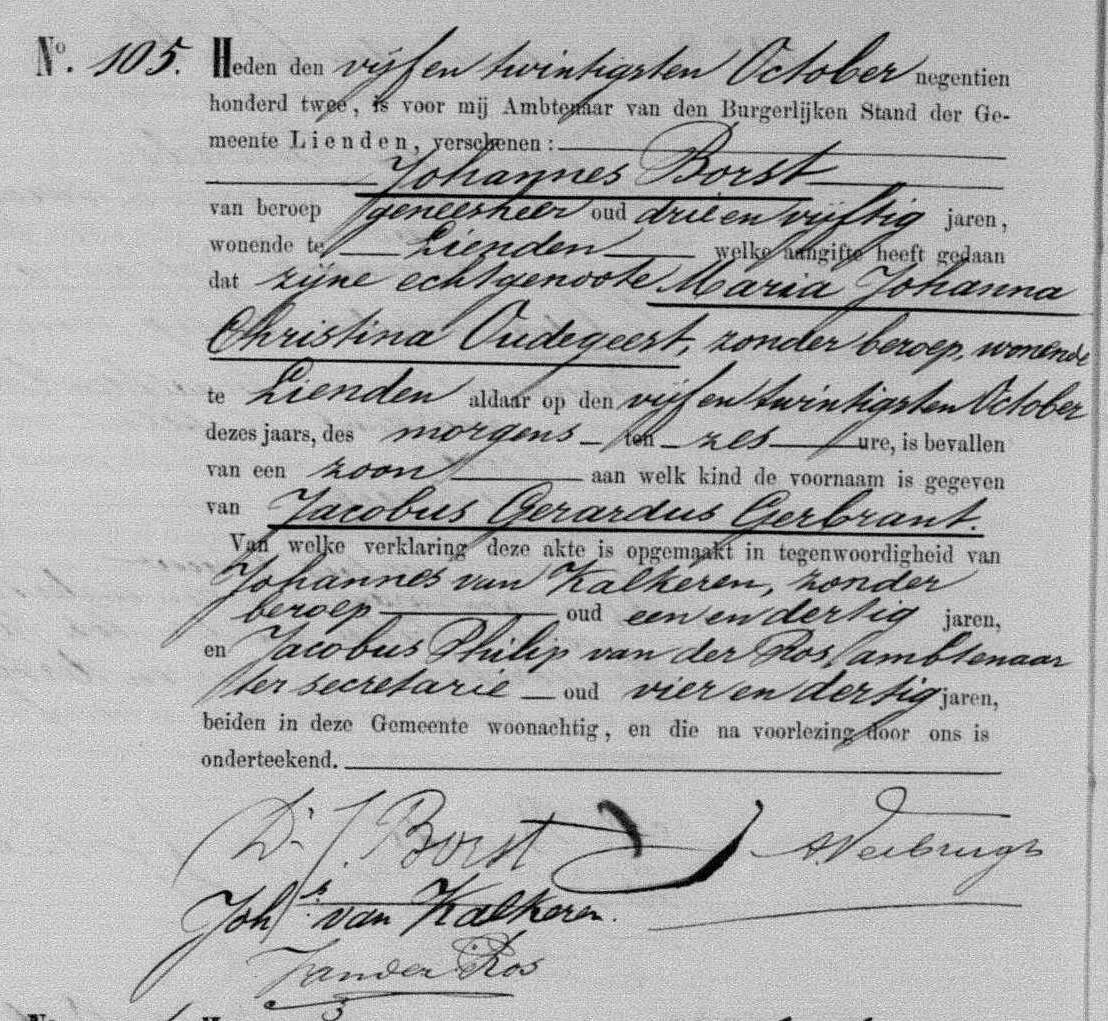 No. 105. Heden den vijf en twintigsten October negentien
honderd twee, is voor mij Ambtenaar van den Burgerlijken Stand der Ge-
meente Lienden, verschenen:
Johannes Borst
van beroep geneesheer oud drie en vijftig jaren,
wonende te Lienden welke aangifte heeft gedaan
dat zijne echtgenoote Maria Johanna
Christina Oudegeest, zonder beroep, wonende
te Lienden aldaar op den vijf en twintigsten October
dezes jaars, des morgens ten zes ure, is bevallen
van een zoon aan welk kind de voornaam is gegeven
van Jacobus Gerardus Gerbrant.
Van welke verklaring deze akte is opgemaakt in tegenwoordigheid van
Johannes van Kalkeren, zonder
beroep oud een en dertig jaren,
en Jacobus Philip van der Ros, ambtenaar
ter secretarie oud vier en dertig jaren,
beiden in deze Gemeente woonachtig, en die na voorlezing door ons is
onderteekend.
Dr. J. Borst
Johs. van Kalkeren.
van der Ros